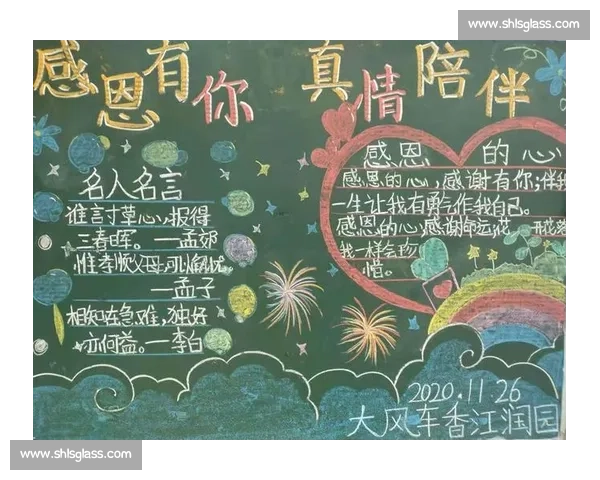 www.shlsglass.com
感恩有你 真情陪伴
名人名言
谁言寸草心,报得
三春晖。—孟郊
惟孝顺父母,可以解忧。
—孟子
相知在急难,独好
亦何益。—李白
感恩 的心
感恩的心,感谢有你;伴我
一生让我有勇气作我自己。
感恩的心,感谢命运,花 开花落
我一样会珍
惜。
2020.11.26
大风车香江润园
www.shlsglass.com